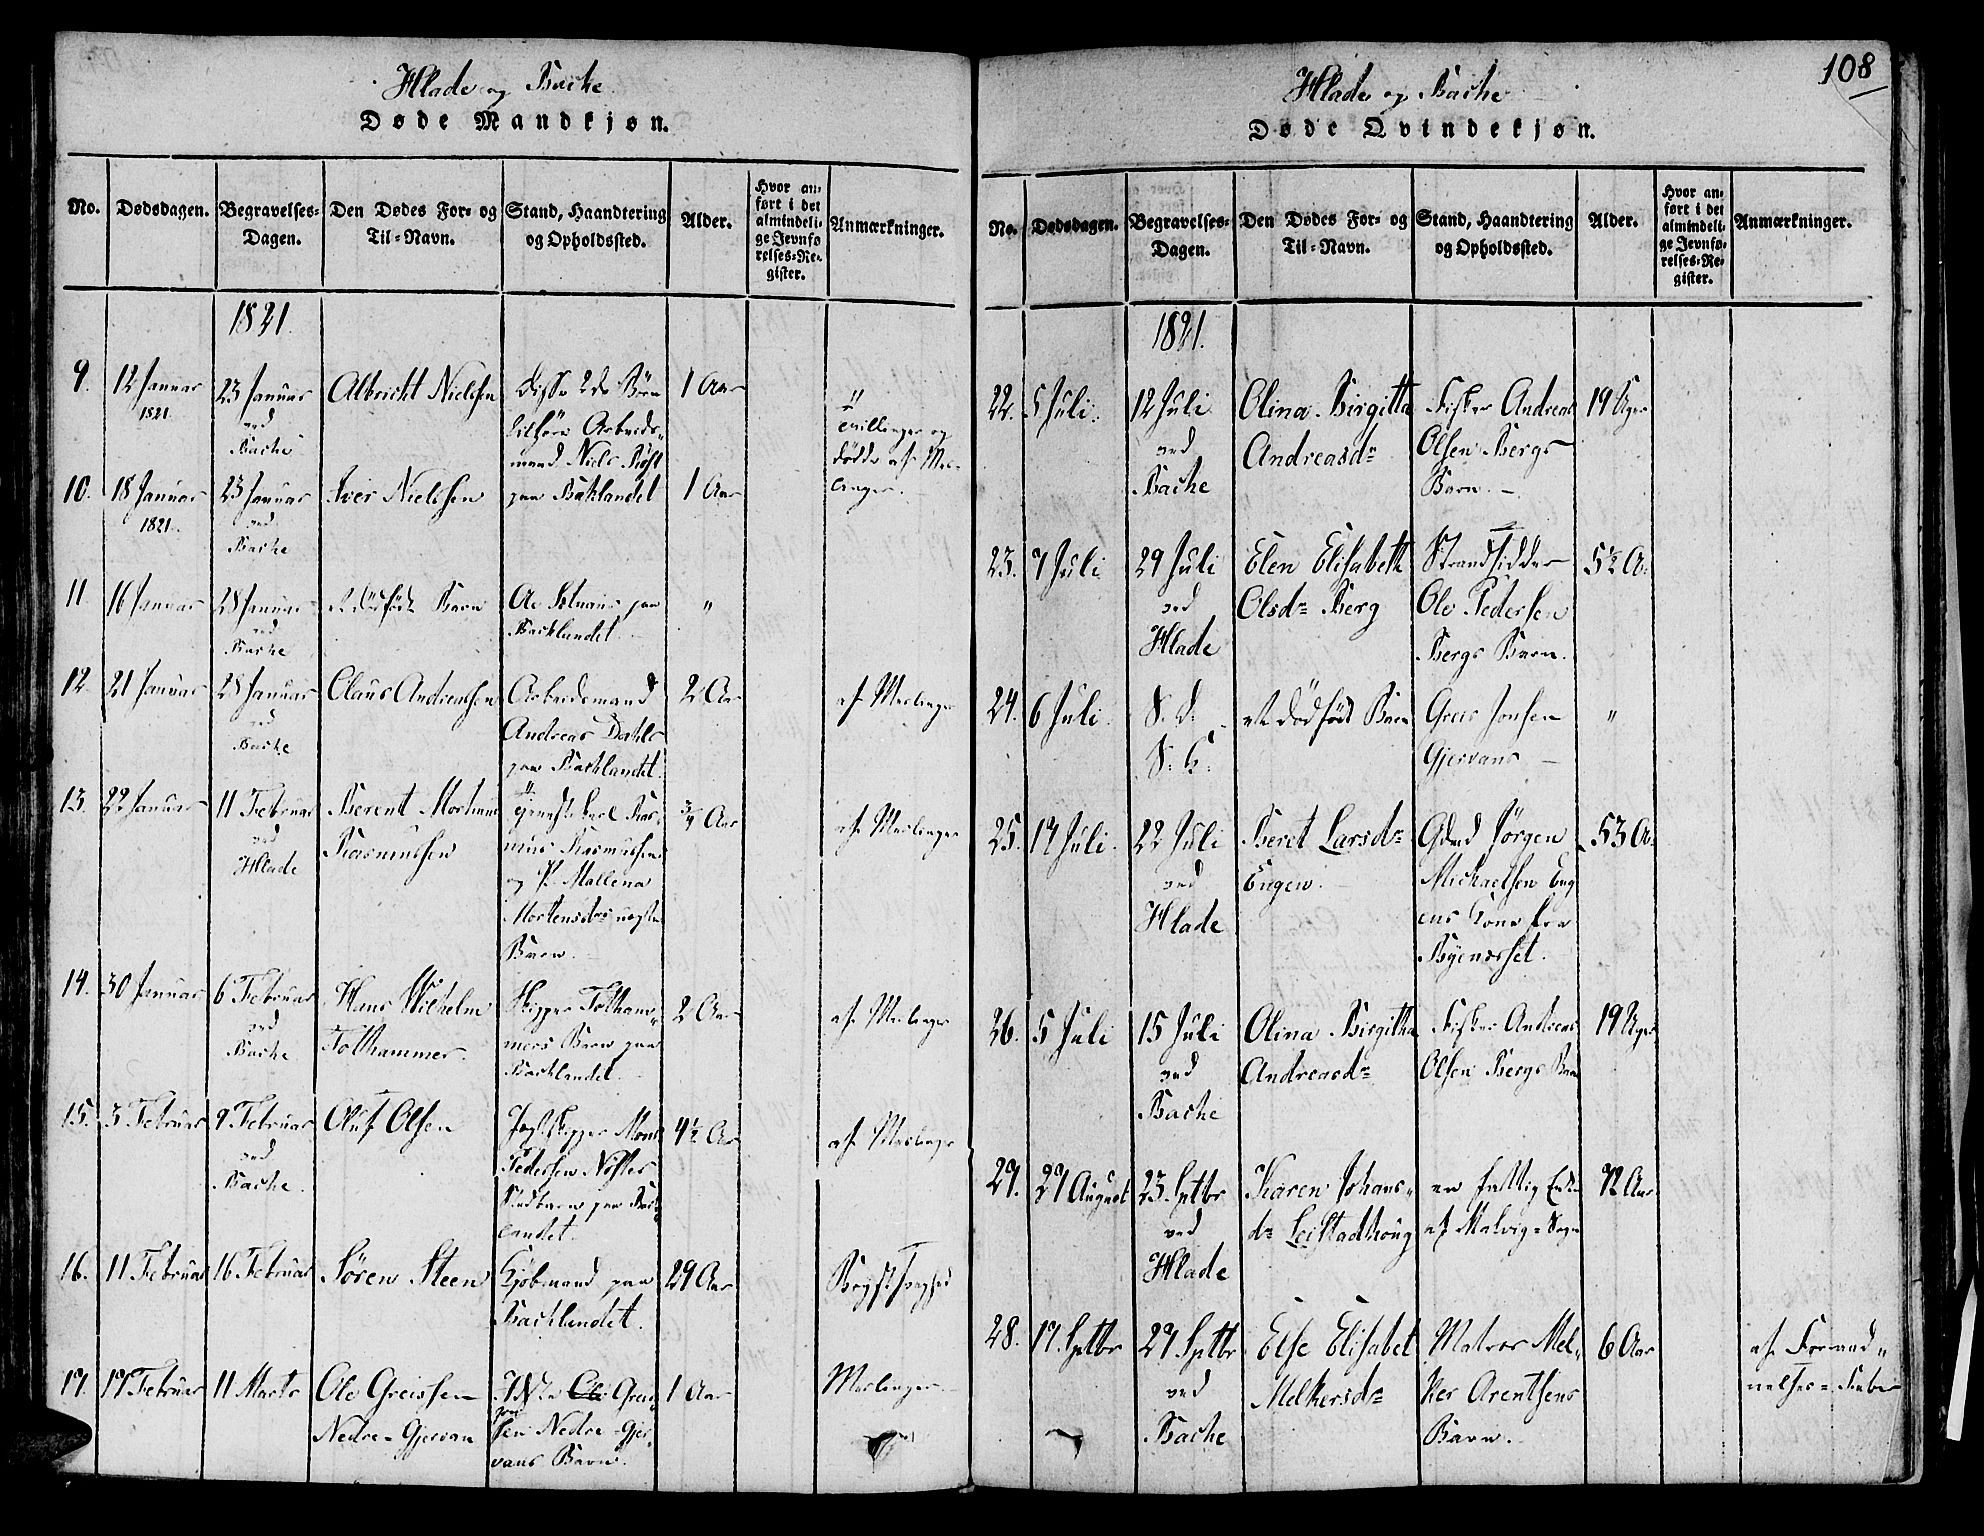 Hlade og Backe
Døde Mandkjøn.
No. Dødsdagen. Begravelses-Dagen. Den Dødes For- og Til-Navn. Stand, Haandtering og Opholdssted. Alder. Hvor anført i det almindelige Jevnførelses-Register. Anmærkninger.
1821.
9. 12 Januar 1821 23 Januar ved Bache Albricht Nielsen Disse 2de Børn tilhøre Arbeidsmand Niels 1 Aar
Tvillinger og døde af Meslinger.
10. 18 Januar 1821. 23 Januar ved Bache Iver Nielsen paa Baklandet 1 Aar
11. 16 Januar 28 Januar ved Bache et dødfødt Barn paa Backlandet. "
12. 21 Januar 28 Januar ved Backe Claus Andreassen Arbeidsmand Andreas Dahls paa Backlandet. 2 Aar af Meslinger
13. 22 Januar 11 Februar ved Hlade Berent Mortinus Rasmussen Rasmus Rasmussen og P. Mallena Mortensdr uægte Barn. 3/4 Aar af Meslinger
14. 30 Januar 6 Februar ved Bache Hans Wilhelm Folhammer. Skipper Folhammers Barn paa Backlandet. 2 Aar af Meslinger
15. 3 Februar 9 Februar ved Bache. Oluf Olsen Jagtskipper Pedersen paa Baklandet. 4 1/2 Aar af Meslinger
16. 11 Februar 16 Februar Søren Steen Kjøbmand paa Backlandet. 29 Aar Brystsyghed
17. 17 Februar 11 Marts Ole Greissen Nedre-Gjervan Nedre-Gjervans Barn. 1 Aar Meslinger.
108
Hlade og Bache
Døde Qvindekjøn.
No. Dødsdagen. Begravelses-Dagen. Den Dødes For- og Til-Navn. Stand, Haandtering og Opholdssted. Alder. Hvor anført i det almindelige Jevnførelses-Register. Anmærkninger.
1821.
22. 5 Juli. 12 Juli ved Bache Olina Birgitta Andreasdr Fisker Andreas Olsen Bergs Barn. 19 Uger
23. 7 Juli. 29 Juli ved Hlade Elen Elisabeth Olsdr Berg Strandsidder Ole Pedersen Bergs Barn. 5 1/2 A.
24. 6 Juli. S. d. S. K. et dödfödt Barn Greis Jonsen Gjervans "
25. 17 Juli. 22 Juli ved Hlade Beret Larsdr Engen. Gdmd Jörgen Michaelsen Engens Kone fra Byenæsset. 53 A.
26. 5 Juli 15 Juli ved Bache Olina Birgitha Andreasdr Fisker Andreas Olsen Bergs Barn 19 Uger
27. 27 August 23. Septbr ved Hlade Karen Johansdr Leistadhoug en fattig Enke af Malvig-Sogn 72 Aar
28. 17. Septbr 27 Septbr ved Bache Else Elisabet Melkersdr Matros Melker Arentsens Barn. 6 Aar af Forraadnelses-Feber